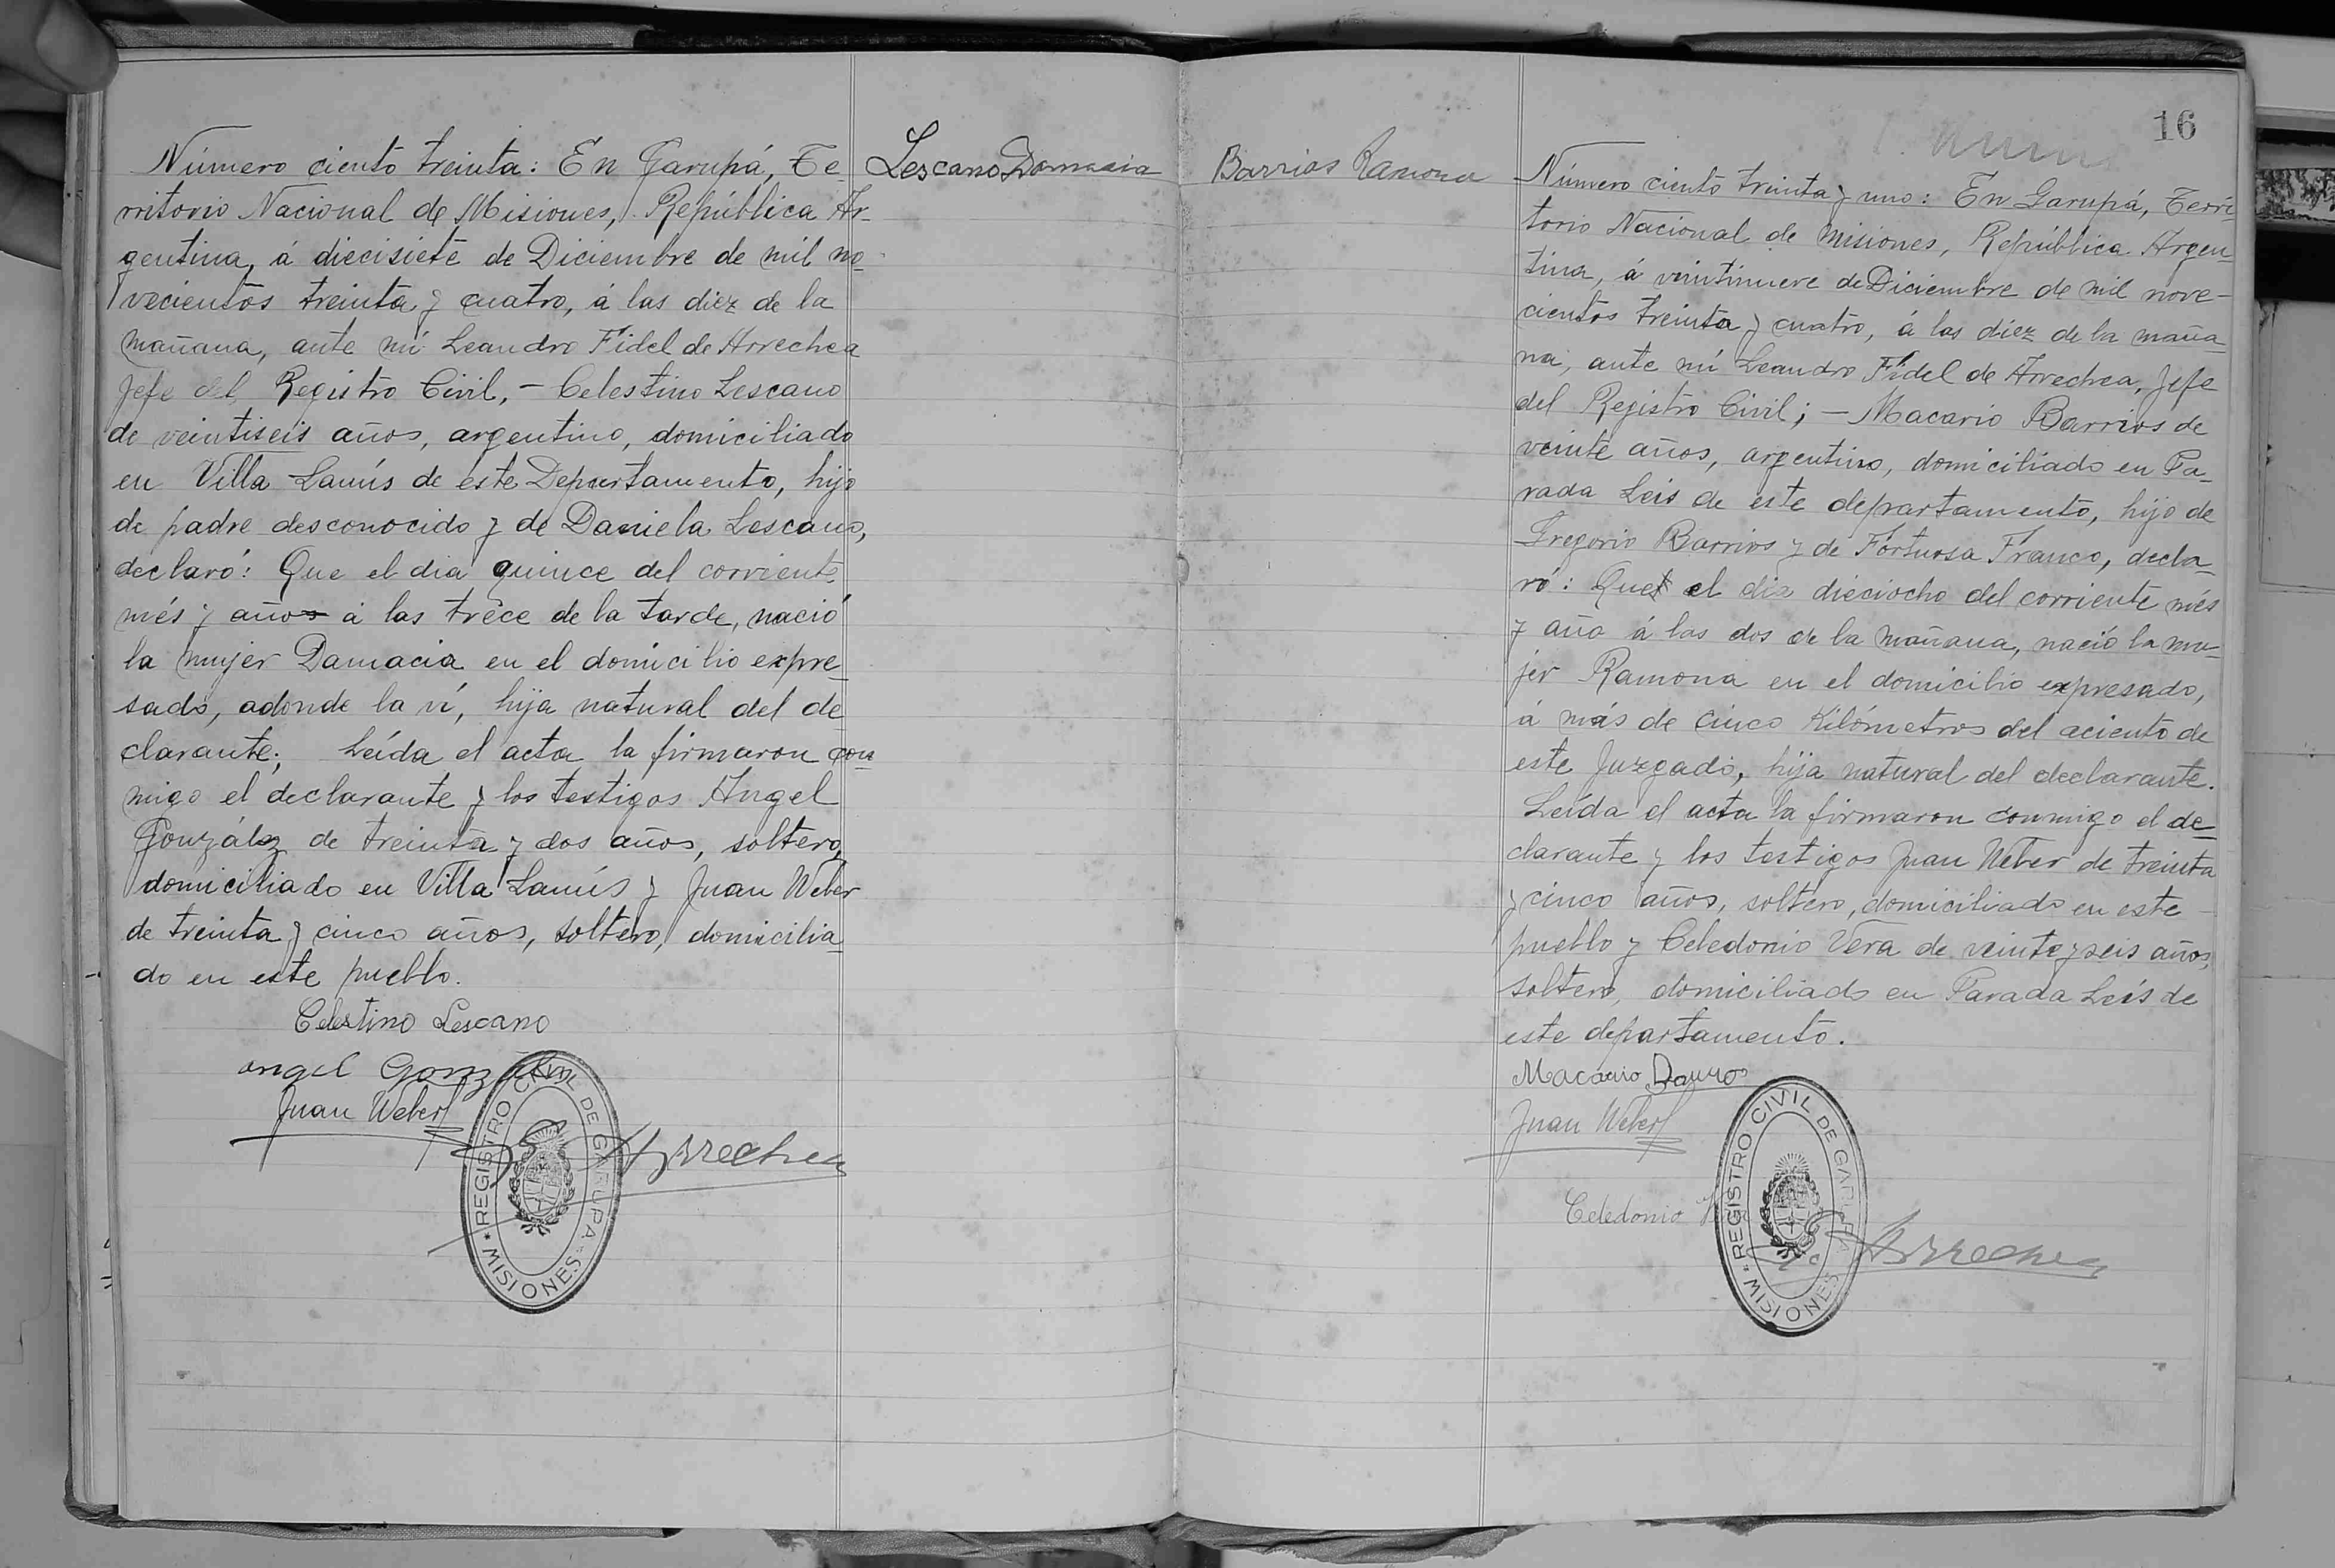 Número ciento treinta: En Garupá, Te
rritorio Nacional de Misiones, República Ar-
gentina, á diecisiete de Diciembre de mil no-
vecientos treinta y cuatro, á las diez de la
mañana, ante mí Leandro Fidel de Arrechea
Jefe del Registro Civil, - Celestino Lescano
de veintiseis años, argentino, domiciliado
en Villa Lanús de este Departamento, hijo
de padre desconocido y de Daniela Lescano,
declaró: Que el dia quince del corriente
més y años á las trece de la tarde, nació
la mujer Damacia en el domicilio expre
sado, adonde la ví, hija natural del de
clarante; Leída el acta la firmaron con
migo el declarante y los testigos Angel
González de treinta y dos años, soltero,
domiciliado en Villa Lanús y Juan Weber
de treinta y cinco años, soltero, domicilia
do en este pueblo.
Celestino Lescano
angel Gonzalez
Juan Weber
Arrechea
REGISTRO CIVIL DE GARUPA
* MISIONES *
Lescano Damacia
Barrios Ramona
16
Número ciento treinta y uno: En Garupá, Terri
torio Nacional de Misiones, República Argen
tina, á veintinueve de Diciembre de mil nove-
cientos treinta y cuatro, á las diez de la maña
na, ante mí Leandro Fidel de Arrechea, Jefe
del Registro Civil; - Macario Barrios de
veinte años, argentino, domiciliado en Pa-
rada Leis de este departamento, hijo de
Gregorio Barrios y de Fortuosa Franco, decla-
ró: Que el dia dieciocho del corriente més
y año á las dos de la mañana, nació la mu-
jer Ramona en el domicilio expresado,
á más de cinco Kilómetros del aciento de
este Juzgado, hija natural del declarante.
Leída el acta la firmaron conmigo el de
clarante y los testigos Juan Weber de treinta
y cinco años, soltero, domiciliado en este
pueblo y Celedonio Vera de veinte y seis años,
soltero, domiciliado en Parada Leis de
este departamento.
Macario
Juan Weber
Celedonio
Arrechea
REGISTRO CIVIL DE GARUPA
* MISIONES